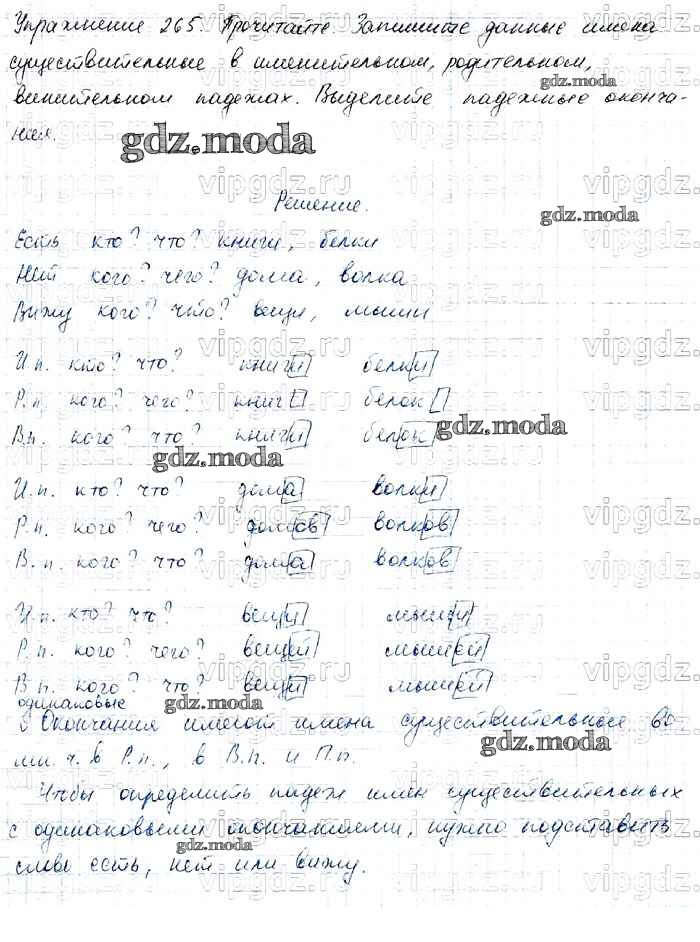 Упражнение 265. Прочитайте. Запишите данные имена
существительные в именительном, родительном,
gdz.moda
винительном падежах. Выделите падежные оконча-
ния.
gdz.moda
vipgdz.ru
Решение.
gdz.moda
Есть кто? что? книги, белки
vipgdz.ru
Нет кого? чего? дома, волка
Вижу кого? что? вещи, мыши
vipgdz.ru
И.п. кто? что? книги белки
Р.п. кого? чего? книг белок
gdz.moda
В.п. кого? что? книги белок
gdz.moda
И.п. кто? что? дома волки
vipgdz.ru
Р.п. кого? чего? домов волков
В.п. кого? что? дома волков
vipgdz.ru
И.п. кто? что? вещи мыши
Р.п. кого? чего? вещей мышей
vipgdz.ru
В.п. кого? что? вещи мышей
одинаковые gdz.moda
Окончания имеют имена существительные во
мн.ч. в Р.п., в В.п. и П.п.
vipgdz.ru
Чтобы определить падеж имен существительных
с одинаковыми окончаниями, нужно подставить
слово есть, нет или вижу.